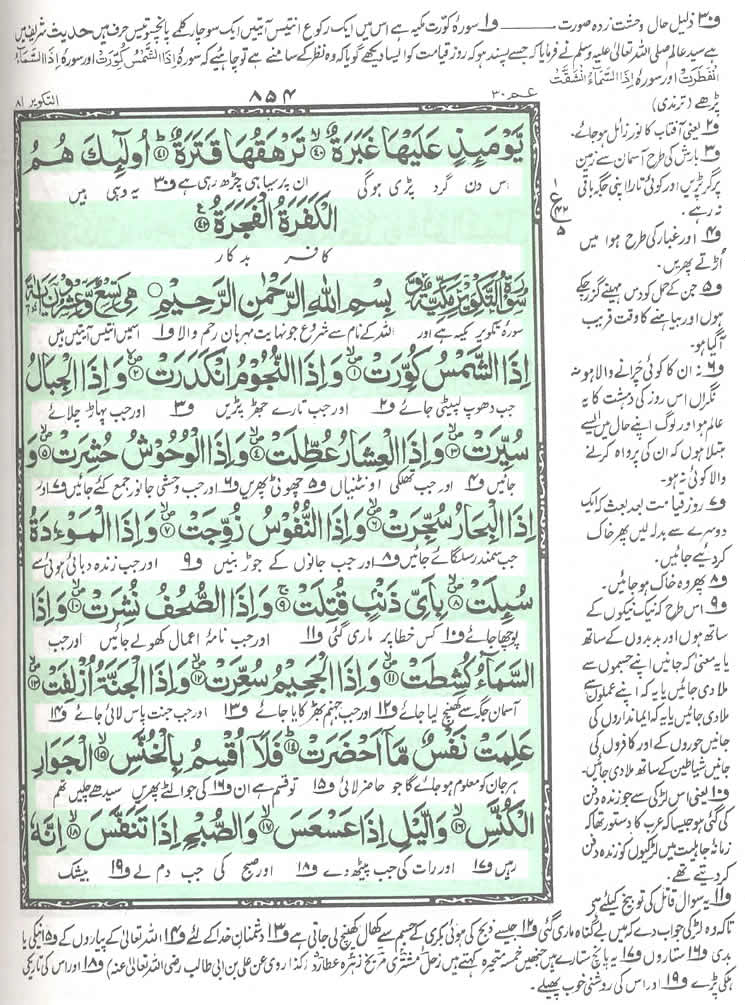 ف٣٠ ذلیل حال وحشت زدہ صورت ــــــــ ف١ سورۂ کورت مکیہ ہے اس میں ایک رکوع انتیس آیتیں ایک سو چار کلمے پانچسو تیس حرف ہیں حدیث شریف میں
ہے سید عالم صلی اللہ تعالیٰ علیہ وسلم نے فرمایا کہ جسے پسند ہو کہ روز قیامت کو ایسا دیکھے گویا کہ وہ نظر کے سامنے ہے تو چاہئے کہ سورۂ اِذَا الشَّمْسُ كُوِّرَتْ اور سورہ اِذَا السَّمَآءُ
انْفَطَرَتْ اور سورہ اِذَا السَّمَآءُ انْشَقَّتْ
پڑھے (ترمذی)
عـــم ٣٠
٨٥٤
التکویر ٨١
يَوْمَئِذٍ عَلَيْهَا غَبَرَةٌ ﴿٤٠﴾ تَرْهَقُهَا قَتَرَةٌ ﴿٤١﴾ اُولٰٓئِكَ هُمُ
اس دن گرد پڑی ہوگی ان پر سیاہی چڑھ رہی ہے ف٣٠ یہ وہی ہیں
الْكَفَرَةُ الْفَجَرَةُ ﴿٤٢﴾
کافر بدکار
سُوْرَةُ التَّكْوِيْرِ مَكِّيَّةٌ وَّ بِسْمِ اللّٰهِ الرَّحْمٰنِ الرَّحِيْمِ هِىَ تِسْعٌ وَّعِشْرُوْنَ اٰيَةً
سورۂ تکویر مکیہ ہے اور اللہ کے نام سے شروع جو نہایت مہربان رحم والا ف١ اسمیں انتیس آیتیں ہیں
اِذَا الشَّمْسُ كُوِّرَتْ ﴿١﴾ وَاِذَا النُّجُوْمُ انْكَدَرَتْ ﴿٢﴾ وَاِذَا الْجِبَالُ
جب دھوپ لپیٹی جائے ف٢ اور جب تارے جھڑ پڑیں ف٣ اور جب پہاڑ چلائے
سُيِّرَتْ ﴿٣﴾ وَاِذَا الْعِشَارُ عُطِّلَتْ ﴿٤﴾ وَاِذَا الْوُحُوْشُ حُشِرَتْ ﴿٥﴾ وَ
جائیں ف٤ اور جب تھلکی اونٹنیاں ف٥ چھوٹی پھریں ف٦ اور جب وحشی جانور جمع کئے جائیں ف٧ اور
اِذَا الْبِحَارُ سُجِّرَتْ ﴿٦﴾ وَاِذَا النُّفُوْسُ زُوِّجَتْ ﴿٧﴾ وَاِذَا الْمَوْءٗدَةُ
جب سمندر سلگائے جائیں ف٨ اور جب جانوں کے جوڑ بنیں ف٩ اور جب زندہ دبائی ہوئی سے
سُئِلَتْ ﴿٨﴾ بِاَىِّ ذَنْۢبٍ قُتِلَتْ ﴿٩﴾ وَاِذَا الصُّحُفُ نُشِرَتْ ﴿١٠﴾ وَاِذَا
پوچھا جائے ف١٠ کس خطا پر ماری گئی ف١١ اور جب نامۂ اعمال کھولے جائیں اور جب
السَّمَآءُ كُشِطَتْ ﴿١١﴾ وَاِذَا الْجَحِيْمُ سُعِّرَتْ ﴿١٢﴾ وَاِذَا الْجَنَّةُ اُزْلِفَتْ ﴿١٣﴾
آسمان جگہ سے کھینچ لیا جائے ف١٢ اور جب جہنم بھڑکایا جائے ف١٣ اور جب جنت پاس لائی جائے ف١٤
عَلِمَتْ نَفْسٌ مَّاۤ اَحْضَرَتْ ﴿١٤﴾ فَلَاۤ اُقْسِمُ بِالْخُنَّسِ ﴿١٥﴾ الْجَوَارِ
ہر جان کو معلوم ہو جائے گا جو حاضر لائی ف١٥ تو قسم ہے ان ف١٦ کی جو الٹے پھریں سیدھے چلیں تھم
الْكُنَّسِ ﴿١٦﴾ وَالَّيْلِ اِذَا عَسْعَسَ ﴿١٧﴾ وَالصُّبْحِ اِذَا تَنَفَّسَ ﴿١٨﴾ اِنَّهٗ
رہیں ف١٧ اور رات کی جب پیٹھ دے ف١٨ اور صبح کی جب دم لے ف١٩ بیشک
ف٢ یعنی آفتاب کا نور زائل ہو جائے۔
ف٣ بارش کی طرح آسمان سے زمین
پر گر پڑیں اور کوئی تارا اپنی جگہ باقی
نہ رہے۔
ف٤ اور غبار کی طرح ہوا میں
اُڑتے پھریں۔
ف٥ جن کے حمل کو دس مہینے گزر چکے
ہوں اور بیاہنے کا وقت قریب
آگیا ہو۔
ف٦: ان کا کوئی چرانے والا ہو نہ
نگراں اس روز کی دہشت کا یہ
عالم ہو اور لوگ اپنے حال میں ایسے
مبتلا ہوں کہ ان کی پرواہ کرنے
والا کوئی نہ ہو۔
ف٧ روز قیامت بعد بعث کہ ایک
دوسرے سے بدلہ لیں پھر خاک
کر دیے جائیں۔
ف٨ پھر وہ خاک ہو جائیں۔
ف٩ اس طرح کہ نیک نیکوں کے
ساتھ ہوں اور بد بدوں کے ساتھ
یا یہ معنی کہ جانیں اپنے جسموں سے
ملا دی جائیں یا یہ کہ اپنے عملوں سے
ملا دی جائیں یا یہ کہ ایمانداروں کی
جانیں حوروں کے اور کافروں کی
جانیں شیاطین کے ساتھ ملا دی جائیں۔
ف١٠ یعنی اس لڑکی سے جو زندہ دفن
کی گئی ہو جیسا کہ عرب کا دستور تھا کہ
زمانۂ جاہلیت میں لڑکیوں کو زندہ دفن
کر دیتے تھے۔
ف١١ یہ سوال قاتل کی توبیخ کیلئے ہے
تاکہ وہ لڑکی جواب دے کہ میں بے گناہ ماری گئی ف١٢ جیسے ذبح کی ہوئی بکری کے جسم سے کھال کھینچ لی جاتی ہے ف١٣ دشمنان خدا کے لئے ف١٤ اللہ تعالیٰ کے پیاروں کے ف١٥ نیکی یا
بدی ف١٦ ستاروں ف١٧ یہ پانچ ستارے ہیں جنھیں خمسہ متحیرہ کہتے ہیں زحل مشتری مریخ زہرہ عطارد (کذا روی عن علی بن ابی طالب رضی اللہ تعالیٰ عنہ) ف١٨ اور اس کی تاریکی
ہلکی پڑے ف١٩ اور اس کی روشنی خوب پھیلے۔